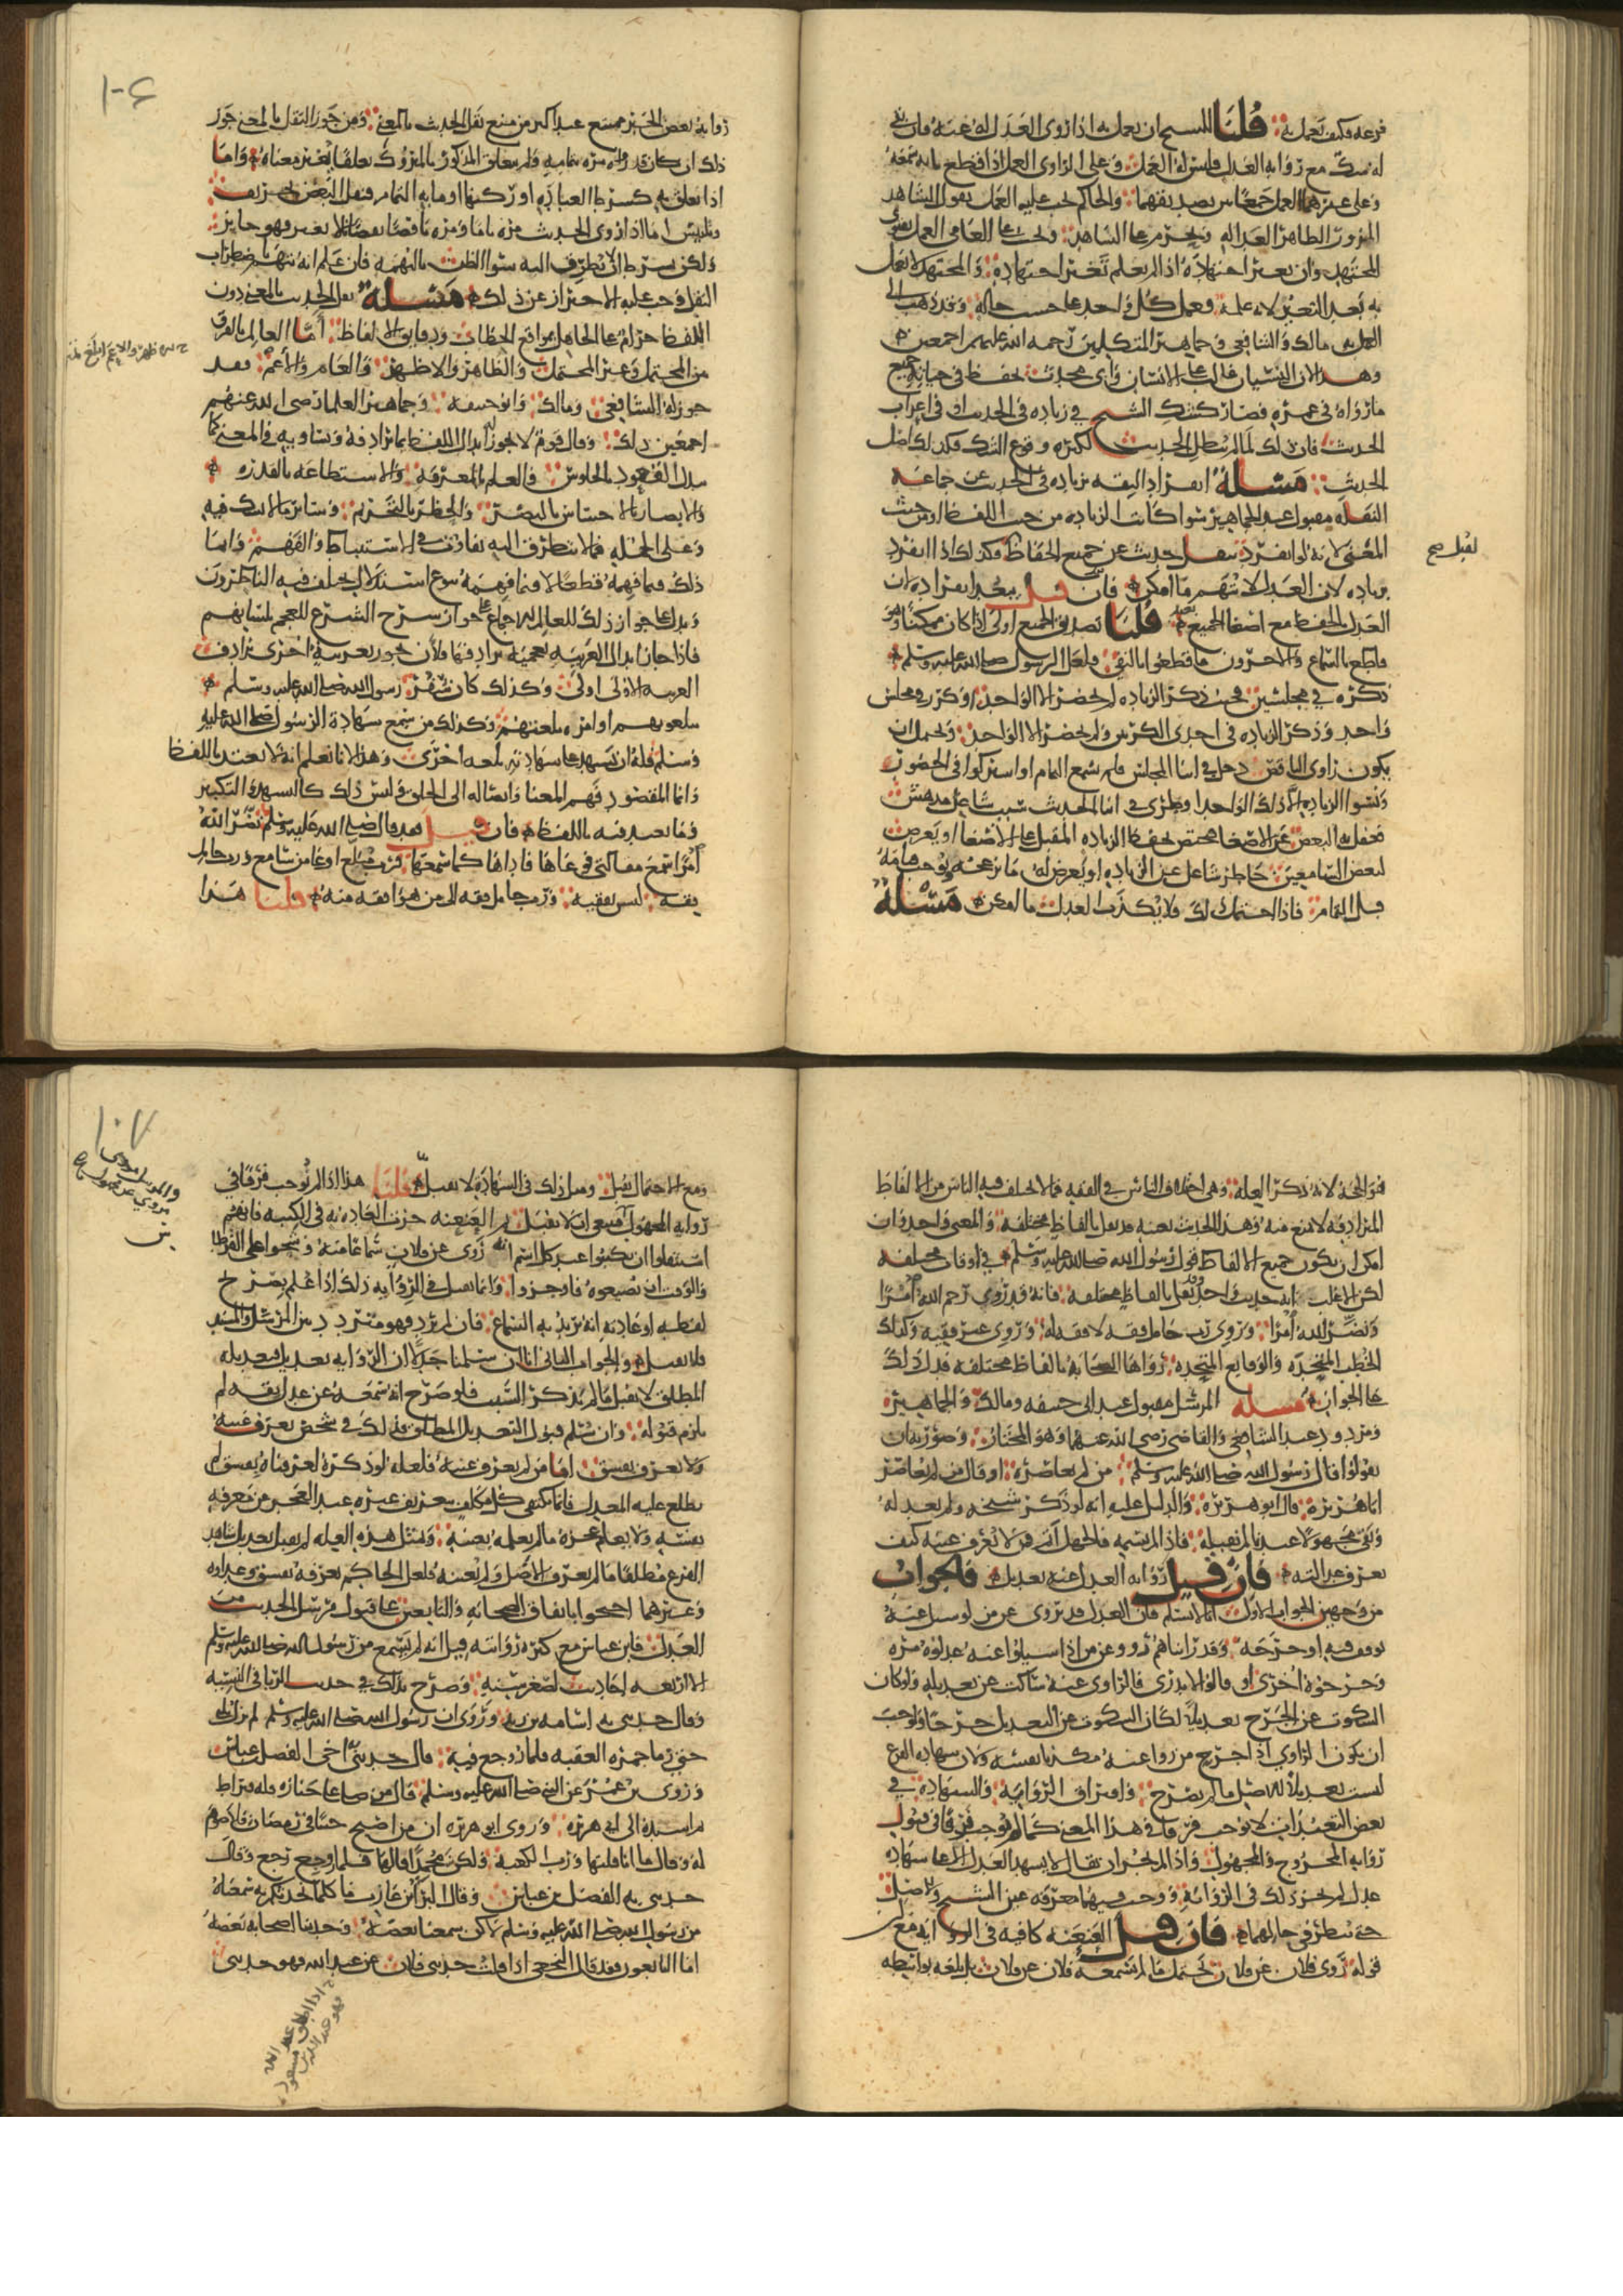 فرعه فكيف يعمل به قلنا للشيخ ان يعمل به اذا روى العدل له عنه فان بقي
له شك مع رواية العدل فليس له العمل وعلى الراوي العمل اذا قطع بانه سمعه
وعلى غيرهما العمل جمعا بين تصديقهما والحاكم يجب عليه العمل بقول الشاهد
المزور الظاهر العدالة ويحرم على الشاهد ويجب على العامي العمل بفتوى
المجتهد وان تغير اجتهاده اذا لم يعلم تغير اجتهاده والمجتهد لا يعمل
به بعد التغير لانه علمه فعمل كل واحد على حسب حاله وقد ذهب الى
العمل به مالك والشافعي وجماهير المتكلمين رحمة الله عليهم اجمعين
وهذا لان النسيان غالب على الانسان واي محدث يحفظ في حياته جميع
ما رواه في عمره فصار كشك الشيخ في زيادة في الحديث او في اعراب
الحديث فان ذلك لما لم يبطل الحديث لكثرة وقوع الشك فكذلك اصل
الحديث مسلة انفراد الثقة بزيادة في الحديث عن جماعة
النقلة مقبول عند الجماهير سوا كانت الزيادة من حيث اللفظ او من حيث
المعنى لانه لو انفرد بنقل حديث عن جميع الحفاظ فكذلك اذا انفرد
بزيادة لان العدل لا يتهم ما امكن فان قيل يبعد انفراده ان
لقبل صح
العدل بالحفظ مع اصغا الجميع قلنا تصديق الجميع اولى اذا كان ممكنا وهو
قاطع بالسماع والاخرون ما قطعوا بالنفي فلعل الرسول صلى الله عليه وسلم
ذكره في مجلسين فحيث ذكر الزيادة لم يحضر الا الواحد او كرر في مجلس
واحد وذكر الزيادة في احدى الكرتين ولم يحضر الا الواحد ويحتمل ان
يكون راوي الناقص دخل في اثنا المجلس فلم يسمع التمام او اشتركوا في الحضور
ونسوا الزيادة الا ذلك الواحد او طرى في اثنا الحديث سبب شاغل مدهش
فغفل به البعض عن الاصغا فيختص بحفظ الزيادة المقبل على الاصغا او يعرض
لبعض السامعين خاطر شاغل عن الزيادة او يعرض له ما يزعجه يوجب قيامه
قبل التمام فاذا احتمل ذلك فلا يكذب العدل ما امكن مسلة
١٠٦
رواية بعض الخبر ممتنع عند اكثر من منع نقل الحديث بالمعنى ومن جوز النقل بالمعنى جوز
ذلك ان كان قد رواه مرة بتمامه ولم يتعلق المذكور بالمتروك تعلقا يغير معناه واما
اذا تعلق به كشرط العبادة او ركنها او ما به التمام فنقل البعض تحريف
وتلبيس اما اذا روى الحديث مرة تاما ومرة ناقصا نقصانا لا يغير فهو جايز
ولكن بشرط ان لا يتطرق اليه سوا الظن بالتهمة فان علم انه يتهم باضطراب
النقل وجب عليه الاحتراز عن ذلك مسلة نقل الحديث بالمعنى دون
اللفظ حرام على الجاهل بمواقع الخطاب ودقايق الالفاظ اما العالم بالفرق
بين المحتمل وغير المحتمل والظاهر والاظهر والعام والاعم فقد
جوز له الشافعي ومالك وابو حنيفة وجماهير العلما رضي الله عنهم
اجمعين ذلك وقال قوم لا يجوز الا ابدال اللفظ بما يرادفه ويساويه في المعنى كما
يبدل القعود بالجلوس والعلم بالمعرفة والاستطاعة بالقدرة
والابصار بالاحساس بالبصر والحظر بالتحريم وساير ما لا يشك فيه
وعلى الجملة فما لا يتطرق اليه تفاوت في الاستنباط والفهم وانما
ذلك فيما فهمه قطعا لا فيما فهمه بنوع استدلال يختلف فيه الناظرون
ويدل على جواز ذلك للعالم الاجماع على جواز شرح الشرع للعجم بلسانهم
فاذا جاز ابدال العربية بعجمية ترادفها فلان يجوز بعربية اخرى ترادف
العربية الاولى اولى وكذلك كان سفر رسول الله صلى الله عليه وسلم
يبلغونهم اوامره بلغتهم وكذلك من سمع شهادة الرسول صلى الله عليه
وسلم فله ان يشهد على شهادته بلغة اخرى وهذا لانا نعلم انه لا تعبد باللفظ
وانما المقصود فهم المعنا وايصاله الى الخلق وليس ذلك كالتشهد والتكبير
وما تعبد فيه باللفظ فان قيل فقد قال صلى الله عليه وسلم نضر الله
امرا سمع مقالتي فوعاها فاداها كما سمعها فرب مبلغ اوعا من سامع ورب حامل
فقه ليس بفقيه ورب حامل فقه الى من هو افقه منه قلنا هذا
هو الحجة لانه ذكر العلة وهي اختلاف الناس في الفقه فما لا يختلف فيه الناس من الالفاظ
المترادفة لا يمنع منه وهذا الحديث بعينه قد نقل بالفاظ مختلفة والمعنى واحد وان
امكن ان يكون جميع الالفاظ قول رسول الله صلى الله عليه وسلم في اوقات مختلفة
لكن الاغلب انه حديث واحد ونقل بالفاظ مختلفة فانه قد روي رحم الله امرا
ونضر الله امرا وروي رب حامل فقه لا فقه له وروي غير فقيه وكذلك
الخطب المتحدة والوقايع المتحدة رواها الصحابة بالفاظ مختلفة فدل ذلك
على الجواز مسلة المرسل مقبول عند ابي حنيفة ومالك والجماهير
ومردود عند الشافعي والقاضي رضي الله عنهما وهو المختار وصورته ان
يقول قال رسول الله صلى الله عليه وسلم من لم يعاصره او قال من لم يعاصر
ابا هريرة قال ابو هريرة والدليل عليه انه لو ذكر شيخه ولم يعدله
وبقي مجهولا عندنا لم نقبله فاذا لم يسمه فالجهل اتم فمن لا تعرف عينه كيف
تعرف عدالته فان قيل رواية العدل عنه تعديل فالجواب
من وجهين الجواب الاول انا لا نسلم فان العدل قد يروي عن من لو سيل عنه
توقف فيه او جرحه وقد رايناهم رووا عن من اذا سيلوا عنه عدلوه مرة
وجرحوه اخرى او قالوا لا ندري فالراوي عنه ساكت عن تعديله ولو كان
السكوت عن الجرح تعديلا لكان السكوت عن التعديل جرحا ولوجب
ان يكون الراوي اذا جرح من روا عنه مكذبا نفسه ولان شهادة الفرع
ليست تعديلا للاصل ما لم يصرح وافتراق الرواية والشهادة في
بعض التعبدات لا يوجب فرقا في هذا المعنى كما لم يوجب فرقا في قبول
رواية المجروح والمجهول واذا لم يجز ان يقال لا يشهد العدل الا على شهادة
عدل لم يجز ذلك في الرواية ووجب فيهما معرفة عين الشيخ والاصل
حتى ينظر في حالهما فان قيل العنعنة كافية في الرواية مع ان
قوله روى فلان عن فلان يحتمل ما لم يسمعه فلان عن فلان بل بلغه بواسطة
١٠٧
ومع الاحتمال تقبل ومثل ذلك في الشهادة لا تقبل قلنا هذا اذا لم يوجب فرقا في
رواية المجهول فينبغي ان لا تقبل ثم العنعنة جرت العادة به في الكتبة فانهم
استثقلوا ان يكتبوا عند كل اسم انه روى عن فلان سماعا منه وشحوا على القرطاس
والوقت ان يضيعوه فاوجزوا وانما يقبل في الرواية ذلك اذا علم بصريح
لفظه او عادته انه يريد به السماع فان لم يرد فهو متردد بين المرسل والمسند
فلا يقبل والجواب الثاني انا ان سلمنا جدلا ان الرواية تعديل فتعديله
المطلق لا يقبل ما لم يذكر السبب فلو صرح انه سمعه عن عدل ثقة لم
يلزم قبوله وان سلم قبول التعديل المطلق فذلك في شخص تعرف عينه
ولا تعرف بفسق اما من لم تعرف عينه فلعله لو ذكره لعرفناه بفسق لم
يطلع عليه المعدل فانما يكتفي كل مكلف بتعريف غيره عند العجز عن معرفة
بنفسه ولا يعلم عجزه ما لم يعلمه بعينه وبمثل هذه العلة لم يقبل تعديل شاهد
الفرع مطلقا ما لم يعرف الاصل ولم يعينه فلعل الحاكم يعرفه بفسق وعداوة
وغيرهما احتجوا باتفاق الصحابة والتابعين على قبول مرسل الحديث من
العدل فابن عباس مع كثرة رواية قيل انه لم يسمع من رسول الله صلى الله عليه وسلم
الا اربعة احاديث لصغر سنه وصرح بذلك في حديث الربا في النسيه
وقال حدثني به اسامة بن زيد وروى ان رسول الله صلى الله عليه وسلم لم يزل يلبي
حتى رما جمرة العقبة فلما روجع فيه قال حدثني به اخي الفضل بن عباس
وروى بن عمر عن النبي صلى الله عليه وسلم قال من صلى على جنازة فله قيراط
ثم اسنده الى ابي هريرة وروى ابو هريرة ان من اصبح جنبا في رمضان فلا صوم
له وقال ما انا قلتها ورب الكعبة ولكن محمدا قالها فلما روجع رجع وقال
حدثني به الفضل بن عباس وقال البرا بن عازب ما كلما نحدثكم به سمعناه
من رسول الله صلى الله عليه وسلم لاكن سمعنا بعضه وحدثنا الصحابة بعضه
اما التابعون فقد قال النخعي اذا قلت حدثني فلان عن عبد الله فهو حدثني
اذا اطلق عبد الله
فهو عبد الله بن مسعود